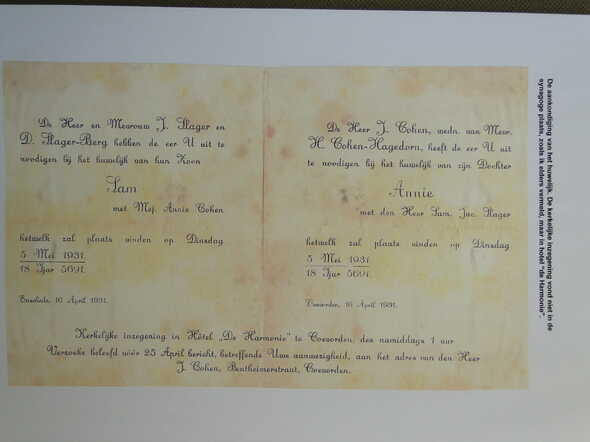 De Heer en Mevrouw J. Slager en
D. Slager-Berg hebben de eer U uit te
noodigen bij het huwelijk van hun Zoon
Sam
met Mej. Annie Cohen
hetwelk zal plaats vinden op Dinsdag
5 Mei 1931.
18 Ijar 5691.
Enschede, 16 April 1931.
De Heer J. Cohen, wedn. van Mevr.
H. Cohen-Hagedorn, heeft de eer U uit
te noodigen bij het huwelijk van zijn Dochter
Annie
met den Heer Sam. Jac. Slager
hetwelk zal plaats vinden op Dinsdag
5 Mei 1931.
18 Ijar 5691.
Coevorden, 16 April 1931.
Kerkelijke inzegening in Hôtel „De Harmonie" te Coevorden, des namiddags 1 uur
Verzoeke beleefd vóór 25 April bericht, betreffende Uwe aanwezigheid, aan het adres van den Heer
J. Cohen, Bentheimerstraat, Coevorden.
De aankondiging van het huwelijk. De kerkelijke inzegening vond niet in de
synagoge plaats, zoals ik elders vermeld, maar in hotel "de Harmonie".